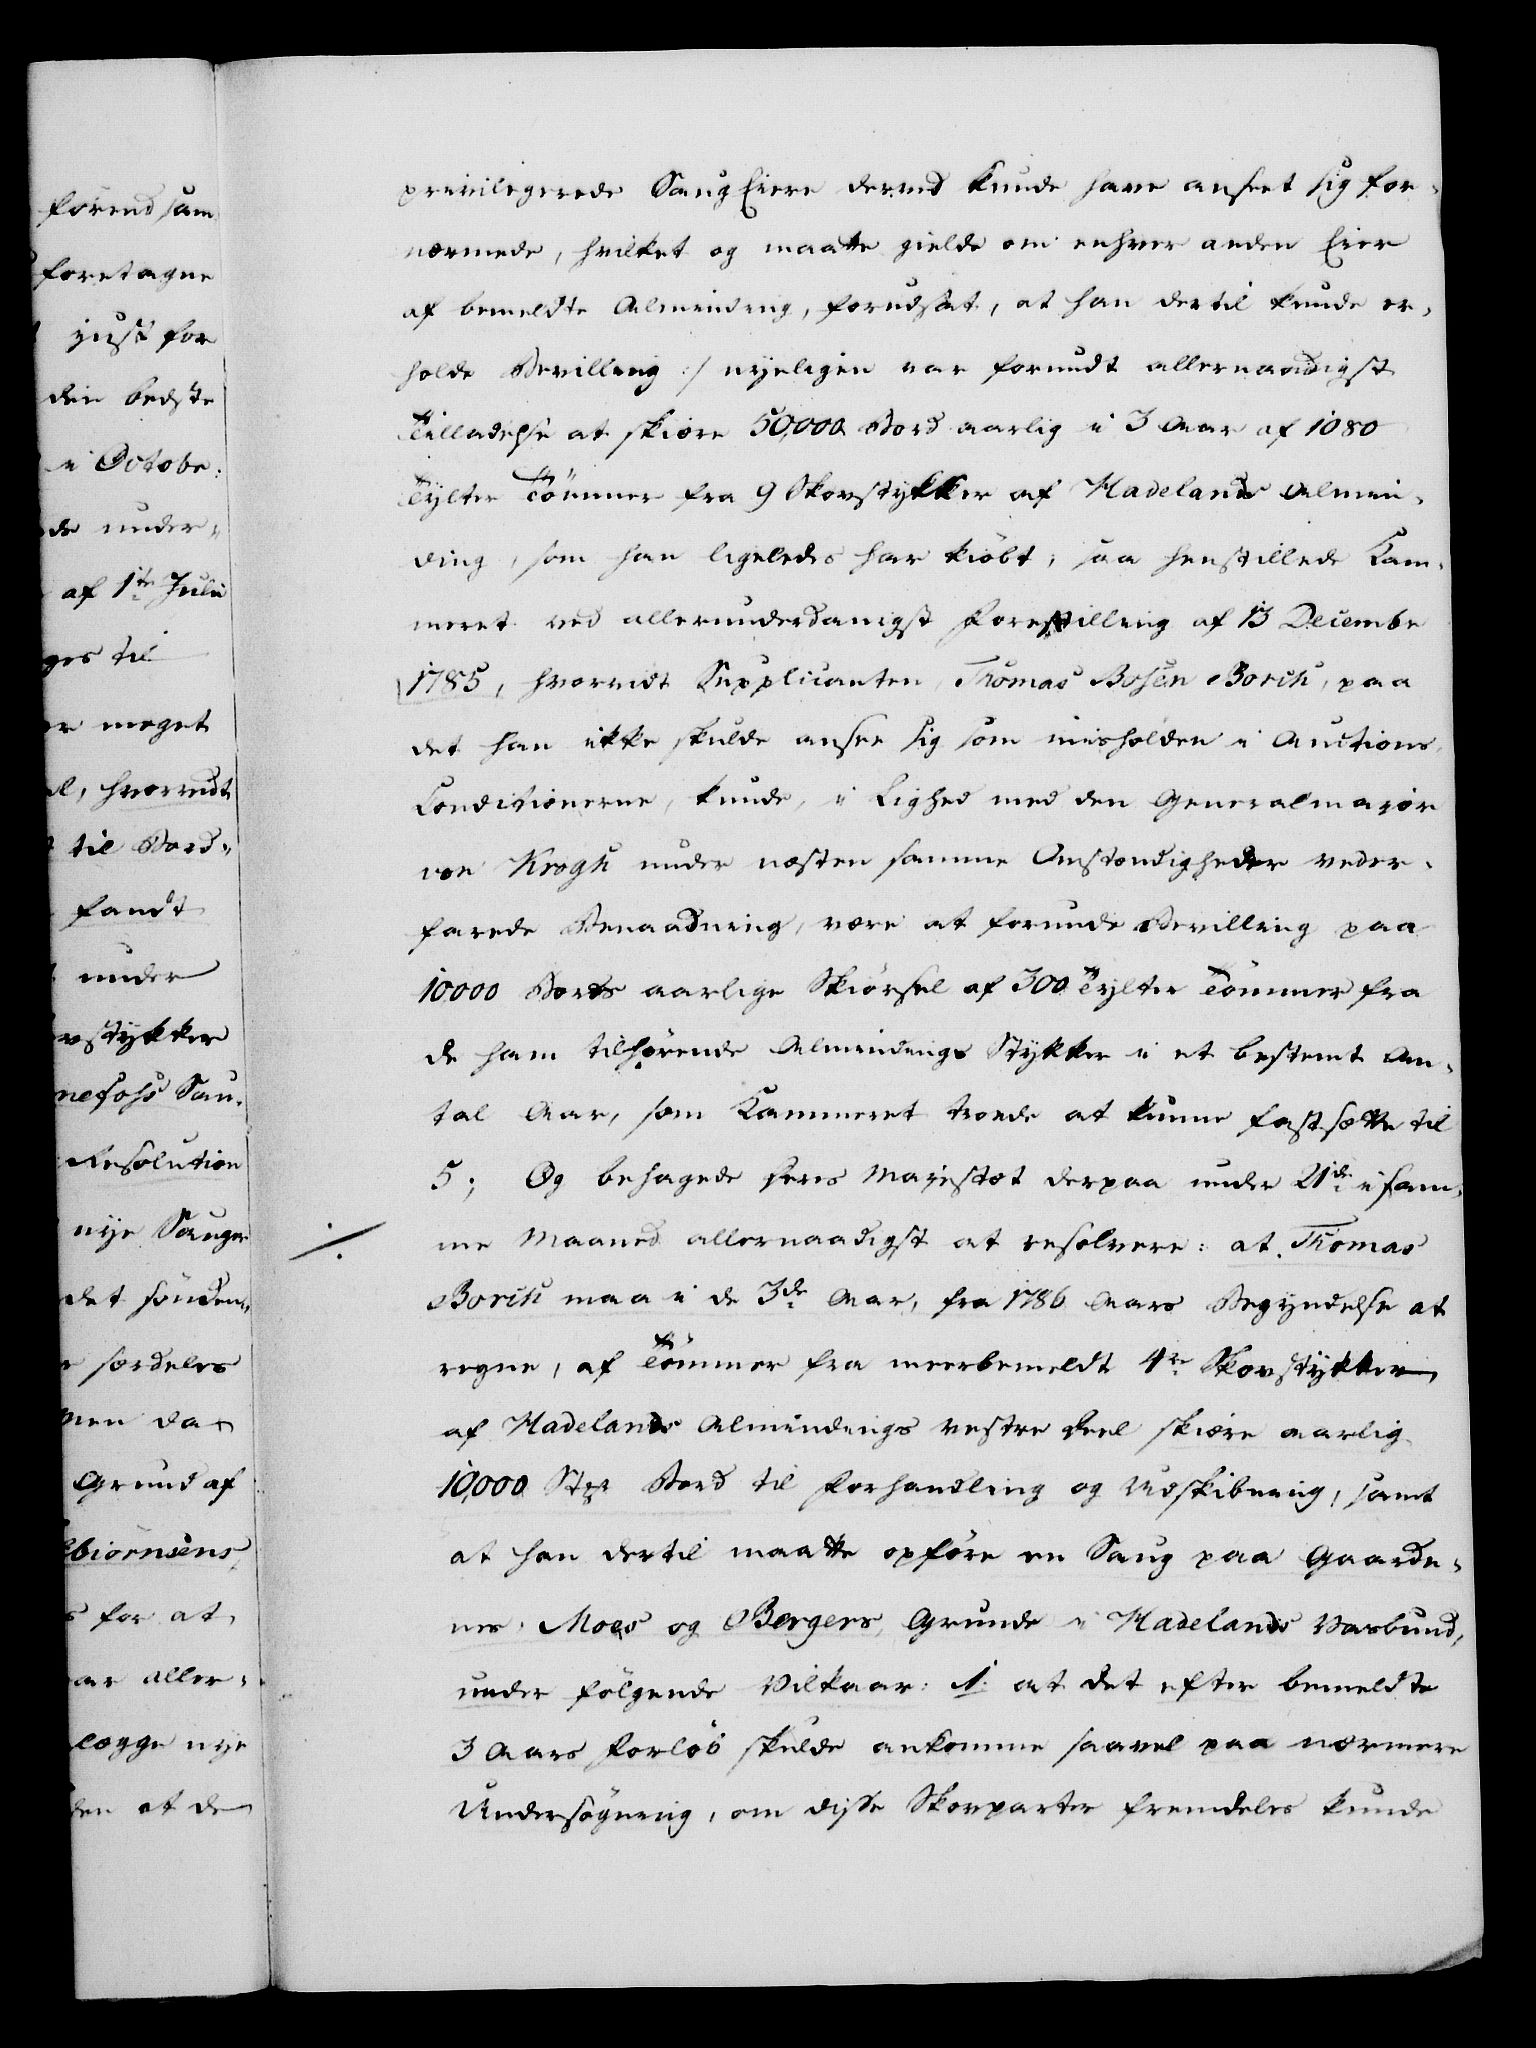 førend sam
foretagne
just for
den bedste
i Octobr:
de under-
af 1te Julii
ges til
er meget
el, hvorvidt
til Bord-
fandt
under
ovstykker
nefoss Sau-
Resolution
nye Sauger
det sønden-
særdeles
men da
Grund af
lbiørnsens
s for at
ar aller-
lægge nye
den at de
privilegerede Saug Eiere derved kunde have anseet sig for-
nærmede, hvilket og maatte gielde om enhver anden Eier
af bemeldte Alminding, forudsat, at han dertil kunde er-
holde Bevilling :/ nyeligen var forundt allernaadigst
Tilladelse at skiære 50,000 Bord aarlig i 3 Aar af 1080
Tylter Tømmer fra 9 Skovstykker af Hadelands Almin-
ding, som han ligeledes har kiøbt; saa henstillede Kam-
meret ved allerunderdanigst Forestilling af 13 Decembr
1785, hvorvidt Supplicanten, Thomas Bosen Borch, paa
det han ikke skulde ansee sig som misholden i Auctions
Conditionerne, kunde, i Lighed med den Generalmajor
von Krogh under næsten samme Omstændigheder veder-
farede Benaadning, være at forunde Bevilling paa
10000 Bords aarlige Skiørsel af 300 Tylter Tømmer fra
de ham tilhørende Almindings Stykker i et bestemt An-
tal Aar, som Kammeret troede at kunne fastsætte til
5; Og behagede Hans Majestæt derpaa under 21de i sam-
me Maaned allernaadigst at resolvere: at Thomas
Borch maa i de 3de Aar, fra 1786 Aars Begyndelse at
regne, af Tømmer fra meerbemeldt 4re Skovstykker
af Hadelands Almindings vestre Deel skiære aarlig
10,000 Stkr Bord til Forhandling og Udskibning, samt
at han dertil maatte opføre en Saug paa Gaarde-
nes Moes og Bergers Grunde i Hadelands Vasbund,
under følgende Vilkaar: 1. at det efter bemeldte
3 Aars Forløb skulde ankomme saavel paa nærmere
Undersøgning, om disse Skovparter fremdeles kunde